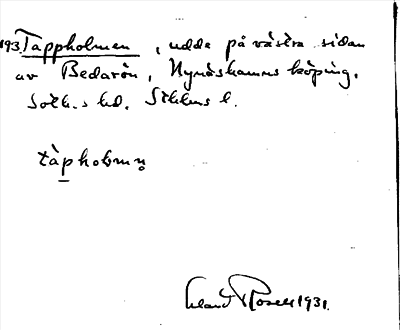 193. Tappholmen, udde på västra sidan
av Bedarön, Nynäshamns köping.
Soth.s hd. Sthlms l.
tàpholmn̥
Erland Rosell 1931.